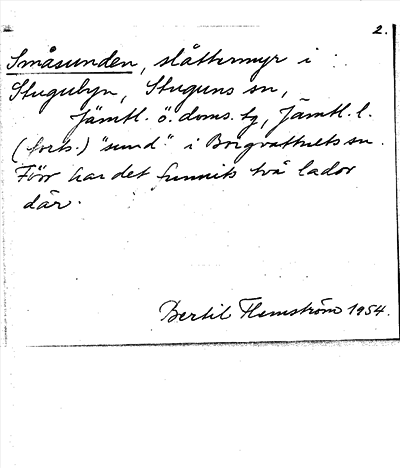 2.
Småsunden, slåttermyr i
Stugubyn, Stuguns sn,
Jämtl. ö. doms. tg, Jämtl. l.
(forts.) "sund" i Borgvattnets sn.
Förr har det funnits två lador
där.
Bertil Flemström 1954.